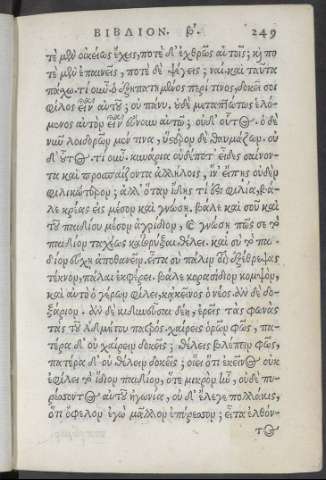 ΒΙΒΛΙΟΝ. β'. 249
τὲ μὲν οἰκείως ἔχεις, ποτὲ δ' ἐχθρῶς αὐτοῖς; καὶ πο
τὲ μὲν ἐπαινεῖς, ποτὲ δὲ ψέγεις; ναί. καὶ ταῦτα
πάχω. τί οὖν; ὁ ἐξηπατημένος περί τινος, δοκεῖ σοι
φίλος εἶναι αὐτοῦ; οὐ πάνυ. ὁ δὲ μεταπτώτως ἑλό-
μενος αὐτὸν εἶναι εὔνους αὐτῷ; οὐδ' οὗτος. ὁ δὲ
νῦν λοιδορῶν μέν τινα, ὕστερον δὲ θαυμάζων. οὐ
δ' οὗτος. τί οὖν; κυνάρια οὐδέποτ' εἶδες σαίνον-
τα καὶ προσπαίζοντα ἀλλήλοις, ἵν' εἴπῃς οὐδὲν
φιλικώτερον; ἀλλ' ὅταν ἴδῃς τί ἐστι φιλία, βά-
λε κρέας εἰς μέσον καὶ γνώσῃ. βάλε καὶ σοῦ καὶ
τοῦ παιδίου μέσον ἀγρίδιον, καὶ γνώσῃ πῶς σε τὸ
παιδίον ταχέως κατορύξαι θέλει. καὶ σὺ τὸ παι-
δίον εὔχῃ ἀποθανεῖν. εἶτα σὺ πάλιν οἷον ἐξέθρεψας
τέκνον, πάλαι ἐκφέρει. βάλε κορασίδιον κομψὸν,
καὶ αὐτὸ ὁ γέρων φιλεῖ, κἀκεῖνος ὁ νέος. ἂν δὲ δο-
ξάριον. ἂν δὲ κινδυνεῦσαι δέῃ, ἐρεῖς τὰς φωνὰς
τὰς τοῦ Ἀδμήτου πατρός. χαίρεις ὁρῶν φῶς, πα-
τέρα δ' οὐ χαίρειν δοκεῖς; θέλεις βλέπειν φῶς,
πατέρα δ' οὐ θέλειν δοκεῖς; οἴει ὅτι ἐκεῖνος οὐκ
ἐφίλει τὸ ἴδιον παιδίον, ὅτε μικρὸν ἦν, οὐδὲ πυ-
ρέσσοντος αὐτοῦ ἠγωνία, οὐδ' ἔλεγε πολλάκις,
ὅτι ὤφελον ἐγὼ μᾶλλον ἐπύρεσσον; εἶτα ἐλθόν-
τος